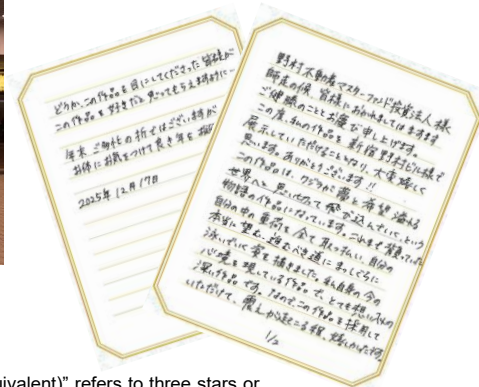 野村不動産マスターファンド投資法人 様
師走の候、皆様におかれましてはますます
ご健勝のこととお慶び申し上げます。
この度、私の作品を新宿野村ビル様で
展示していただけることとなり、大変嬉しく
思います。ありがとうございます!!
この作品は、クジラが夢と希望溢れる
世界へと思いきって飛び込んでいく、という
物語の作品になっています。これまで背負っていた
自分の中の重荷を全て取っ払い、自分の
本当に望む、進むべき道にまっしぐらに
泳いでいく姿を描きました。私自身の今の
心境を現している作品で、とても思い入れの
深い作品です。なので、この作品を採用して
いただけて、震えが起こる程、嬉しかったです。
1/2
どうか、この作品を目にしてくださった皆様が
この作品を好きだと思ってもらえますように…
年末、ご多忙の折ではございますが
お体にお気をつけて良き年を
2025年12月17日
(equivalent)" refers to three stars or